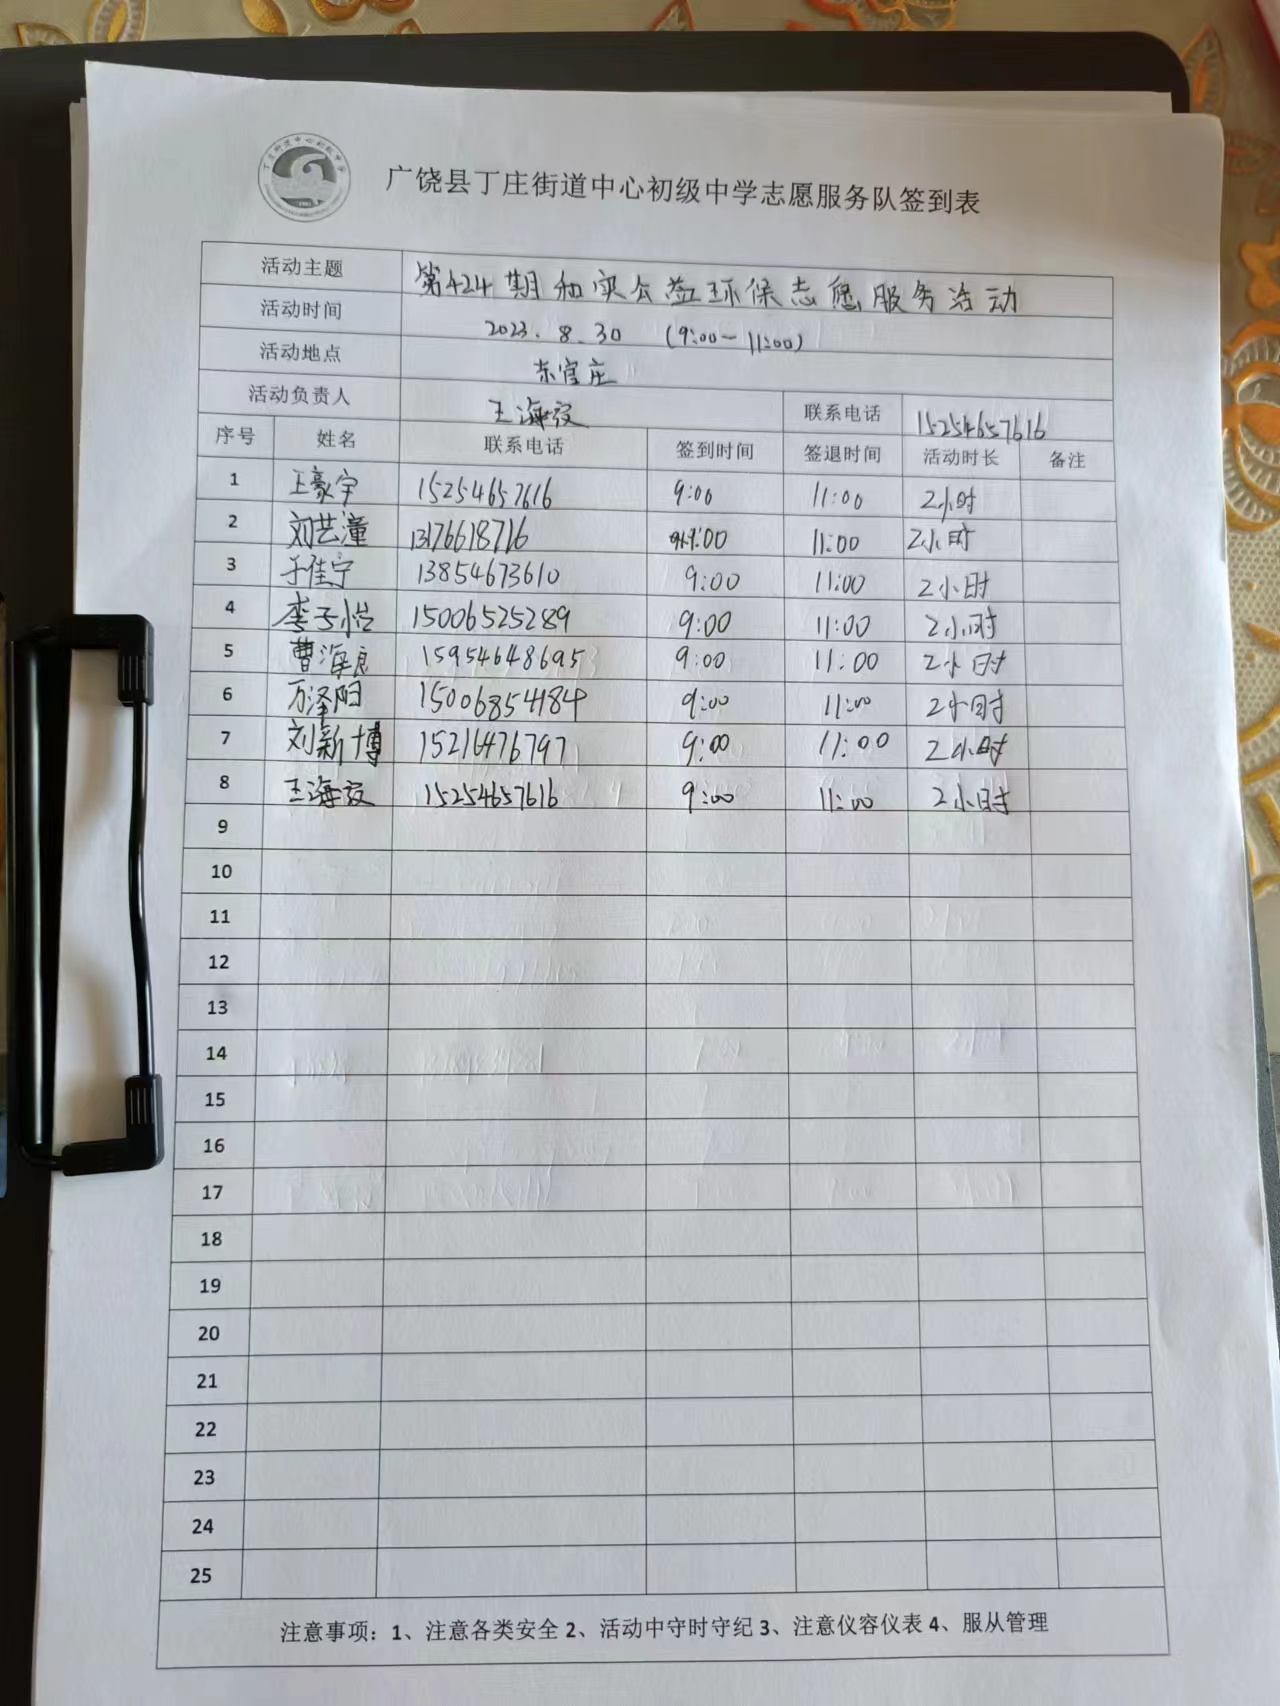 广饶县丁庄街道中心初级中学志愿服务队签到表
活动主题 第424期和实公益环保志愿服务活动
活动时间 2023.8.30 (9:00-11:00)
活动地点 东官庄
活动负责人 王海 联系电话 15254657616
序号 姓名 联系电话 签到时间 签退时间 活动时长 备注
1 王豪宇 15254657616 9:00 11:00 2小时
2 刘艺潼 13176618716 9:00 11:00 2小时
3 于佳宁 13854673610 9:00 11:00 2小时
4 李子怡 15006525289 9:00 11:00 2小时
5 曹海良 15954648695 9:00 11:00 2小时
6 万泽阳 15006854184 9:00 11:00 2小时
7 刘新博 15216476797 9:00 11:00 2小时
8 王海 15254657616 9:00 11:00 2小时
9
10
11
12
13
14
15
16
17
18
19
20
21
22
23
24
25
注意事项：1、注意各类安全 2、活动中守时守纪 3、注意仪容仪表 4、服从管理